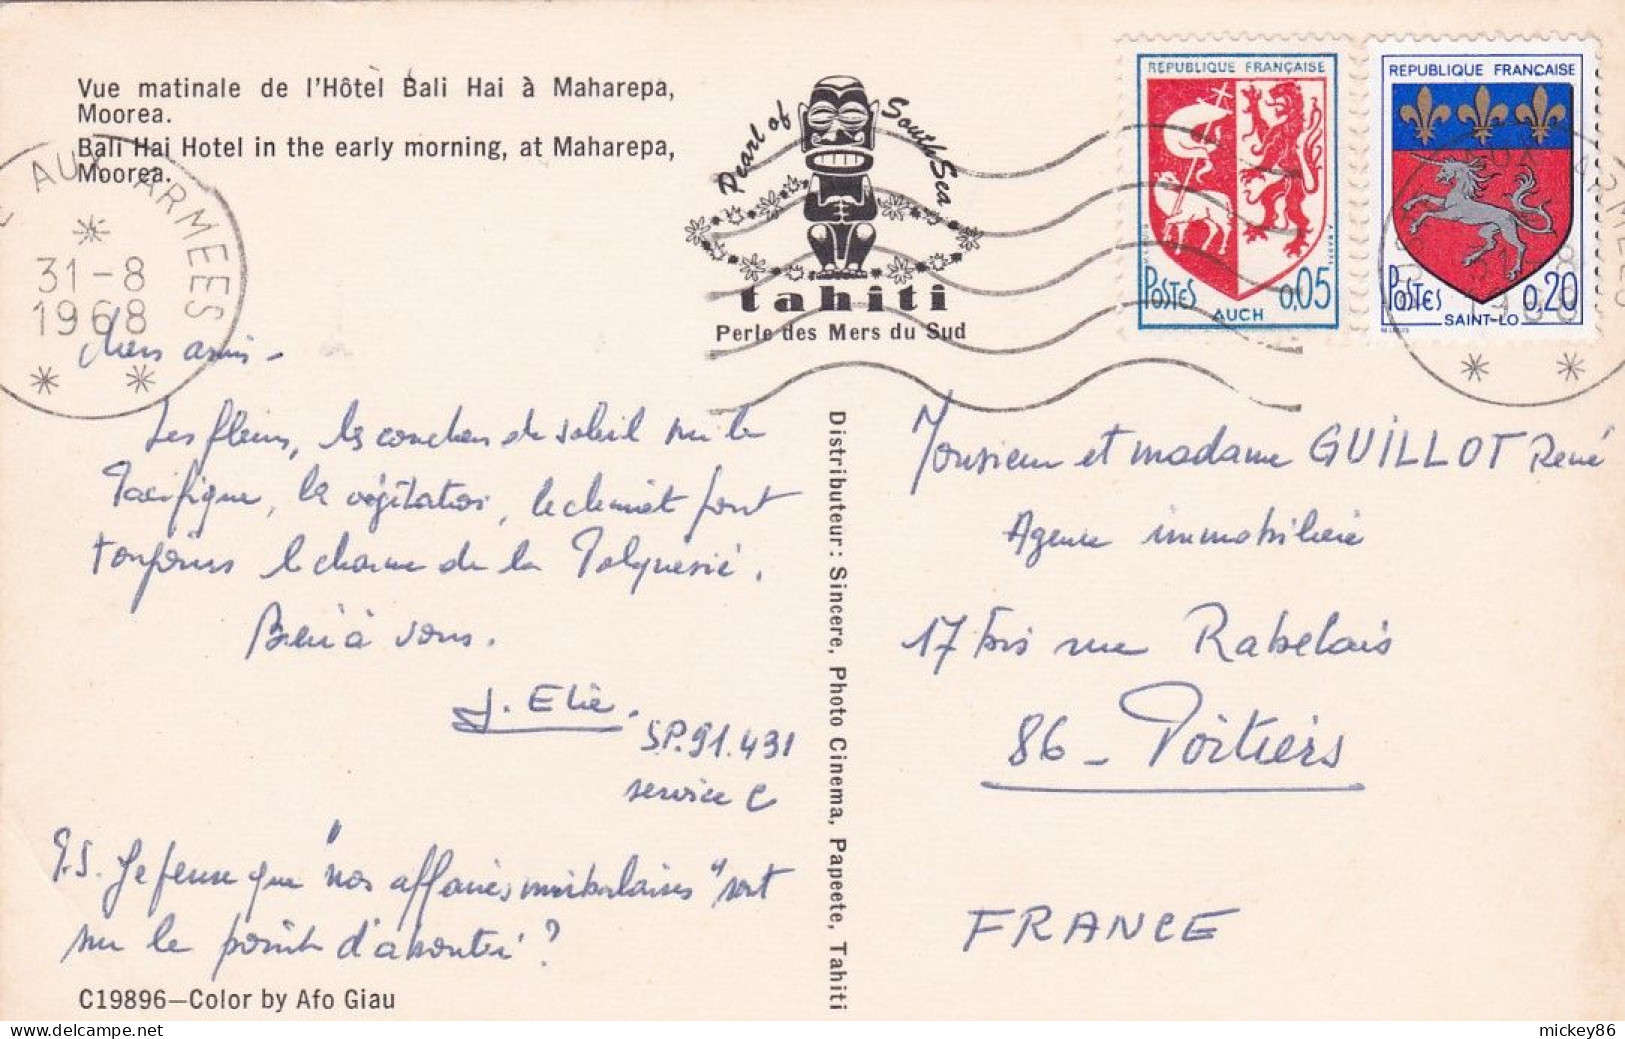 Vue matinale de l'Hôtel Bali Hai à Maharepa,
Moorea.
Bali Hai Hotel in the early morning, at Maharepa,
Moorea.
AUX ARMEES
31-8
1968
Pearl of South Sea
tahiti
Perle des Mers du Sud
REPUBLIQUE FRANÇAISE
POSTES 0,05
AUCH
REPUBLIQUE FRANÇAISE
POSTES 0,20
SAINT-LO
Chers amis -
Les fleurs, les couchers de soleil sur le
Pacifique, la végétation, le climat font
toujours le charme de la Polynésie.
Bien à vous.
J. Elie.
SP. 91.431
service C
P.S. Je pense que "nos affaires immobilières" sont
sur le point d'aboutir ?
C19896—Color by Afo Giau
Distributeur: Sincere, Photo Cinema, Papeete, Tahiti
Monsieur et madame GUILLOT René
Agence immobilière
17 bis rue Rabelais
86 - Poitiers
FRANCE
mickey86